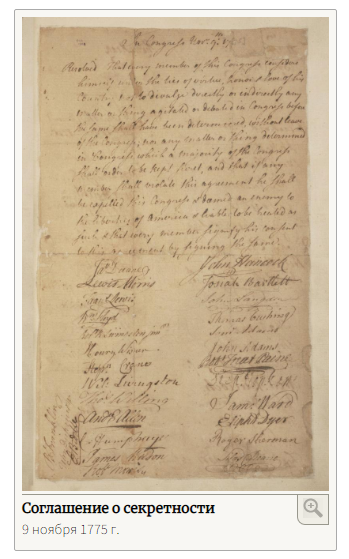 In Congress Nov. 9th 1775
Resolved That every member of this Congress considers
himself under the ties of virtue, honor & love of his
Country not to divulge directly or indirectly any
matter or thing agitated or debated in Congress before
the same shall have been determined, without leave
of the Congress; nor any matter or thing determined
in Congress which a majority of the Congress
shall order to be kept secret, and that if any
member shall violate this agreement he shall
be expelled this Congress & deemed an enemy to
the liberties of America & liable to be treated as
such & that every member signify his consent
to this agreement by signing the same.
John Hancock
Lewis Morris Josiah Bartlett
Fran Lewis John Langdon
Wm Floyd Thomas Cushing
Saml Adams
Henry Wisner John Adams
Wil Livingston
Saml Ward
And Allen Elipht Dyer
Cs Humphreys Roger Sherman
James Wilson
Соглашение о секретности
9 ноября 1775 г.